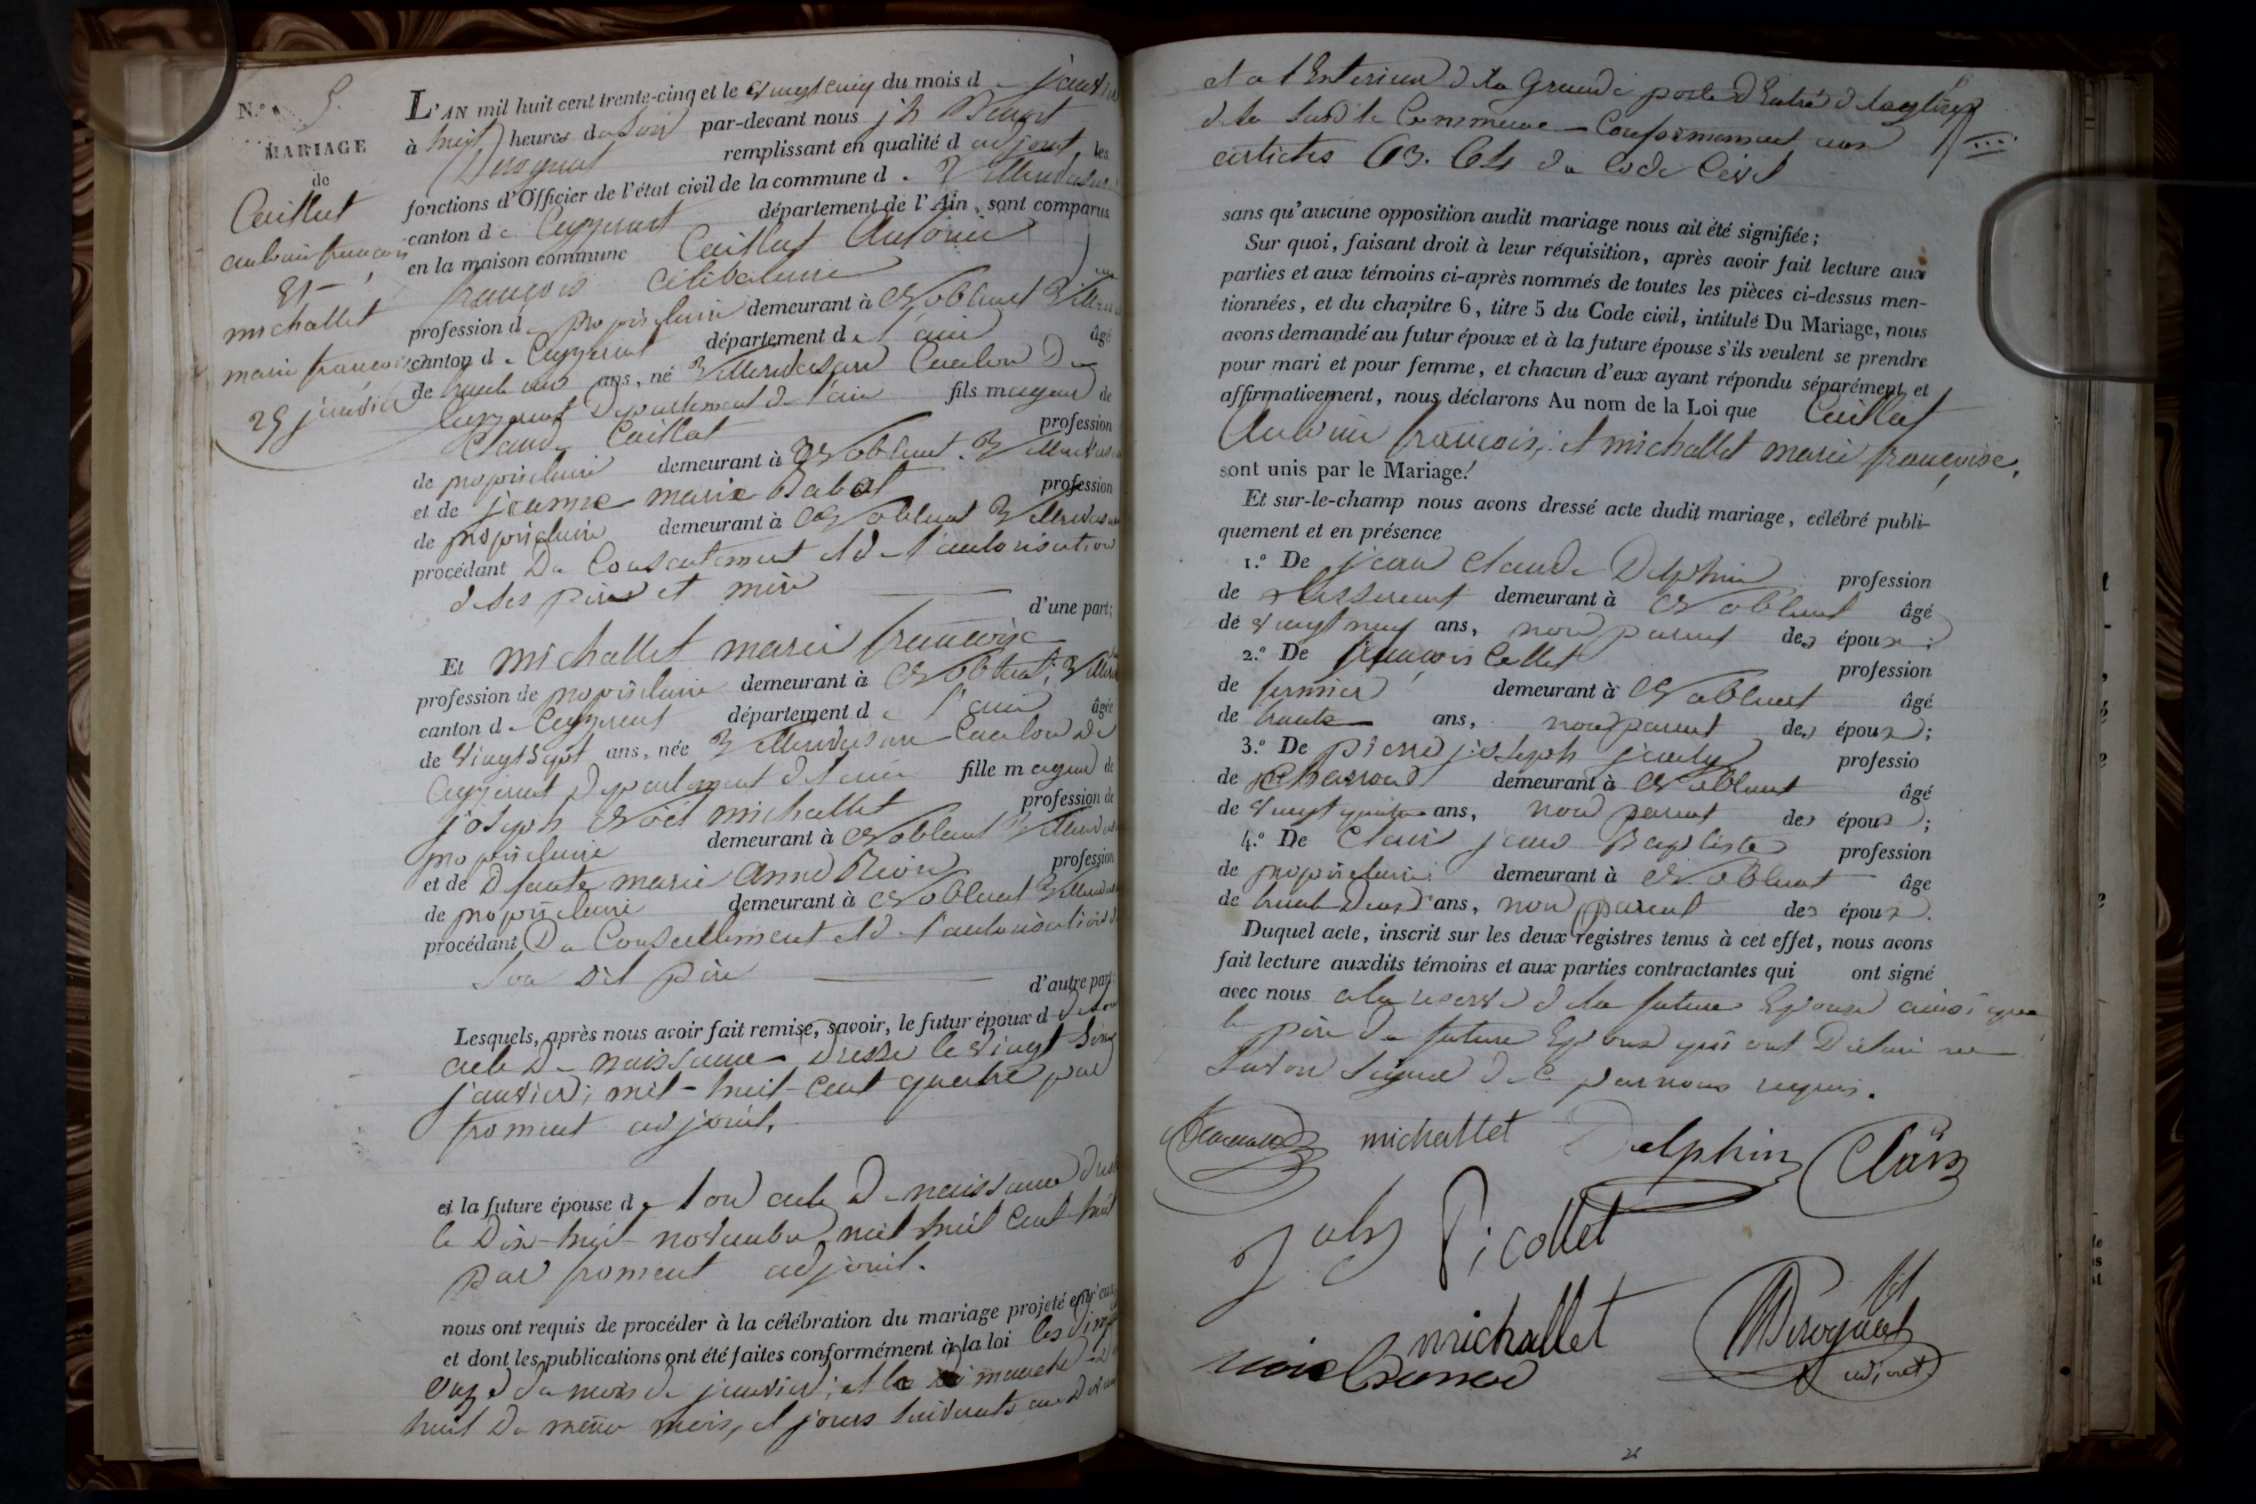 N.º 5.
MARIAGE
de
Caillat
antoine françois
Et
michallet
marie françoise
25 janvier
L'AN mil huit cent trente-cinq et le vingt cinq du mois d janvier
à huit heures du soir par-devant nous jh
remplissant en qualité d adjoint, les
fonctions d'Officier de l'état civil de la commune d
canton d Ceyzeriat département de l'Ain, sont comparus
en la maison commune Caillat Antoine
françois célibataire
profession de propriétaire demeurant à Noblens
canton de Ceyzeriat département de l'ain âgé
de trente ans, né Canton De
Ceyzeriat Departement de l'ain fils majeur de
Claude Caillat profession
de propriétaire demeurant à Noblens
et de jeanne marie Rabat profession
de propriétaire demeurant à Noblens
procédant Du Consentement et de l'autorisation
de ses père et mère d'une part;
Et michallet marie françoise
profession de propriétaire demeurant à
canton de Ceyzeriat département de l'ain âgée
de vingt sept ans, née Canton De
Ceyzeriat Departement de l'ain fille majeure de
joseph Noël michallet profession de
propriétaire demeurant à
et de Defunte marie Anne profession
de propriétaire demeurant à
procédant Du Consentement et de l'autorisation de
son dit père d'autre part
Lesquels, après nous avoir fait remise, savoir, le futur époux de son
acte De naissance Dressé le vingt cinq
janvier, mil-huit-cent quatre par
froment adjoint.
et la future épouse de son acte De naissance Dressé
le Dix-huit novembre mil huit cent huit
par froment adjoint.
nous ont requis de procéder à la célébration du mariage projeté entr'eux
et dont les publications ont été faites conformément à la loi les dimanche
onze du mois de janvier, et le dimanche dix
huit Du même mois, et jours suivants au devant
et a l'Exterieur de la Grande porte d'Entrée de l'église
de la susdite Commune - Conformement aux
articles 63. 64 du Code Civil
sans qu'aucune opposition audit mariage nous ait été signifiée;
Sur quoi, faisant droit à leur réquisition, après avoir fait lecture aux
parties et aux témoins ci-après nommés de toutes les pièces ci-dessus men-
tionnées, et du chapitre 6, titre 5 du Code civil, intitulé Du Mariage, nous
avons demandé au futur époux et à la future épouse s'ils veulent se prendre
pour mari et pour femme, et chacun d'eux ayant répondu séparément et
affirmativement, nous déclarons Au nom de la Loi que Caillat
Antoine françois, et michallet marie françoise,
sont unis par le Mariage.
Et sur-le-champ nous avons dressé acte dudit mariage, célébré publi-
quement et en présence
1.º De jean Claude Delphin profession
de Tisserent demeurant à Noblens âgé
de vingt neuf ans, non parent des époux;
2.º De françois Collet profession
de fermier demeurant à Noblens âgé
de trente ans, non parent des époux;
3.º De pierre joseph profession
de Charron demeurant à Noblens âgé
de vingt quatre ans, non parent des époux;
4.º De Clair jean Baptiste profession
de propriétaire demeurant à Noblens âgé
de trente Deux ans, non parent des époux.
Duquel acte, inscrit sur les deux registres tenus à cet effet, nous avons
fait lecture auxdits témoins et aux parties contractantes qui ont signé
avec nous a la reserve de la future Epouse ainsi que
le père du futur Epoux qui ont Déclaré ne
savoir signer de ce par nous requis.
michallet Delphin Clair
Picollet
michallet
adjoint